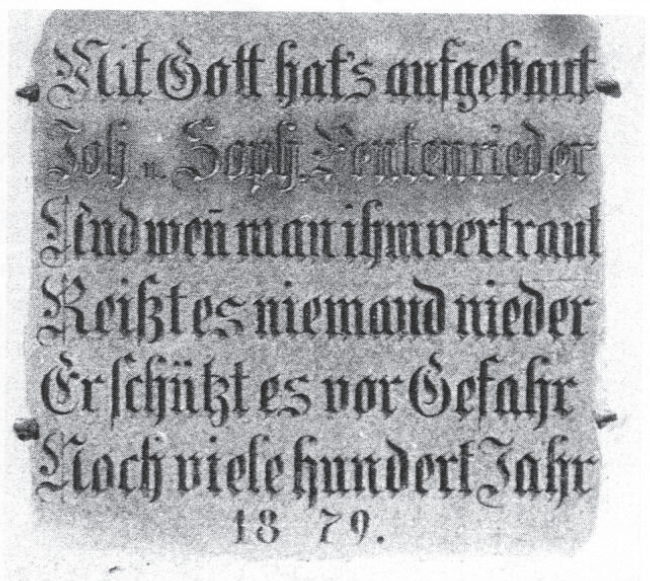 Mit Gott hat's aufgebaut
Joh u. Soph. Pentenrieder
Und weñ man ihm vertraut
Reißt es niemand nieder
Er schützt es vor Gefahr
Noch viele hundert Jahr
1879.